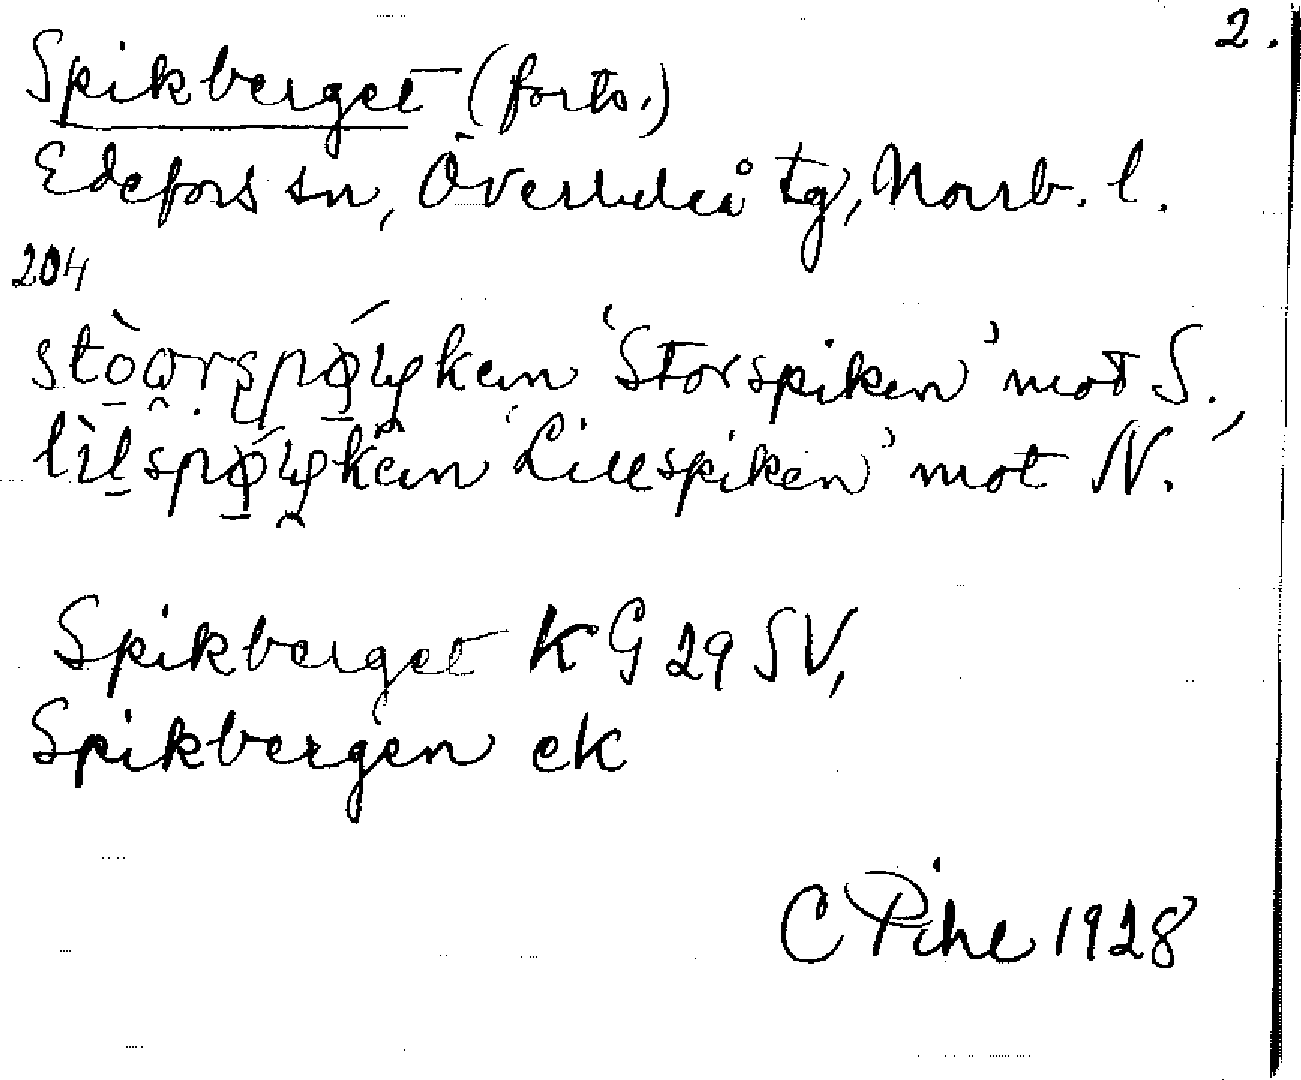 2.
Spikberget (forts.)
Edefors sn, Överluleå tg, Norrb. l.
204
'Storspiken' mot S.,
'Lillspiken' mot N.
Spikberget KG 29 SV,
Spikbergen ek
C Pihl 1928